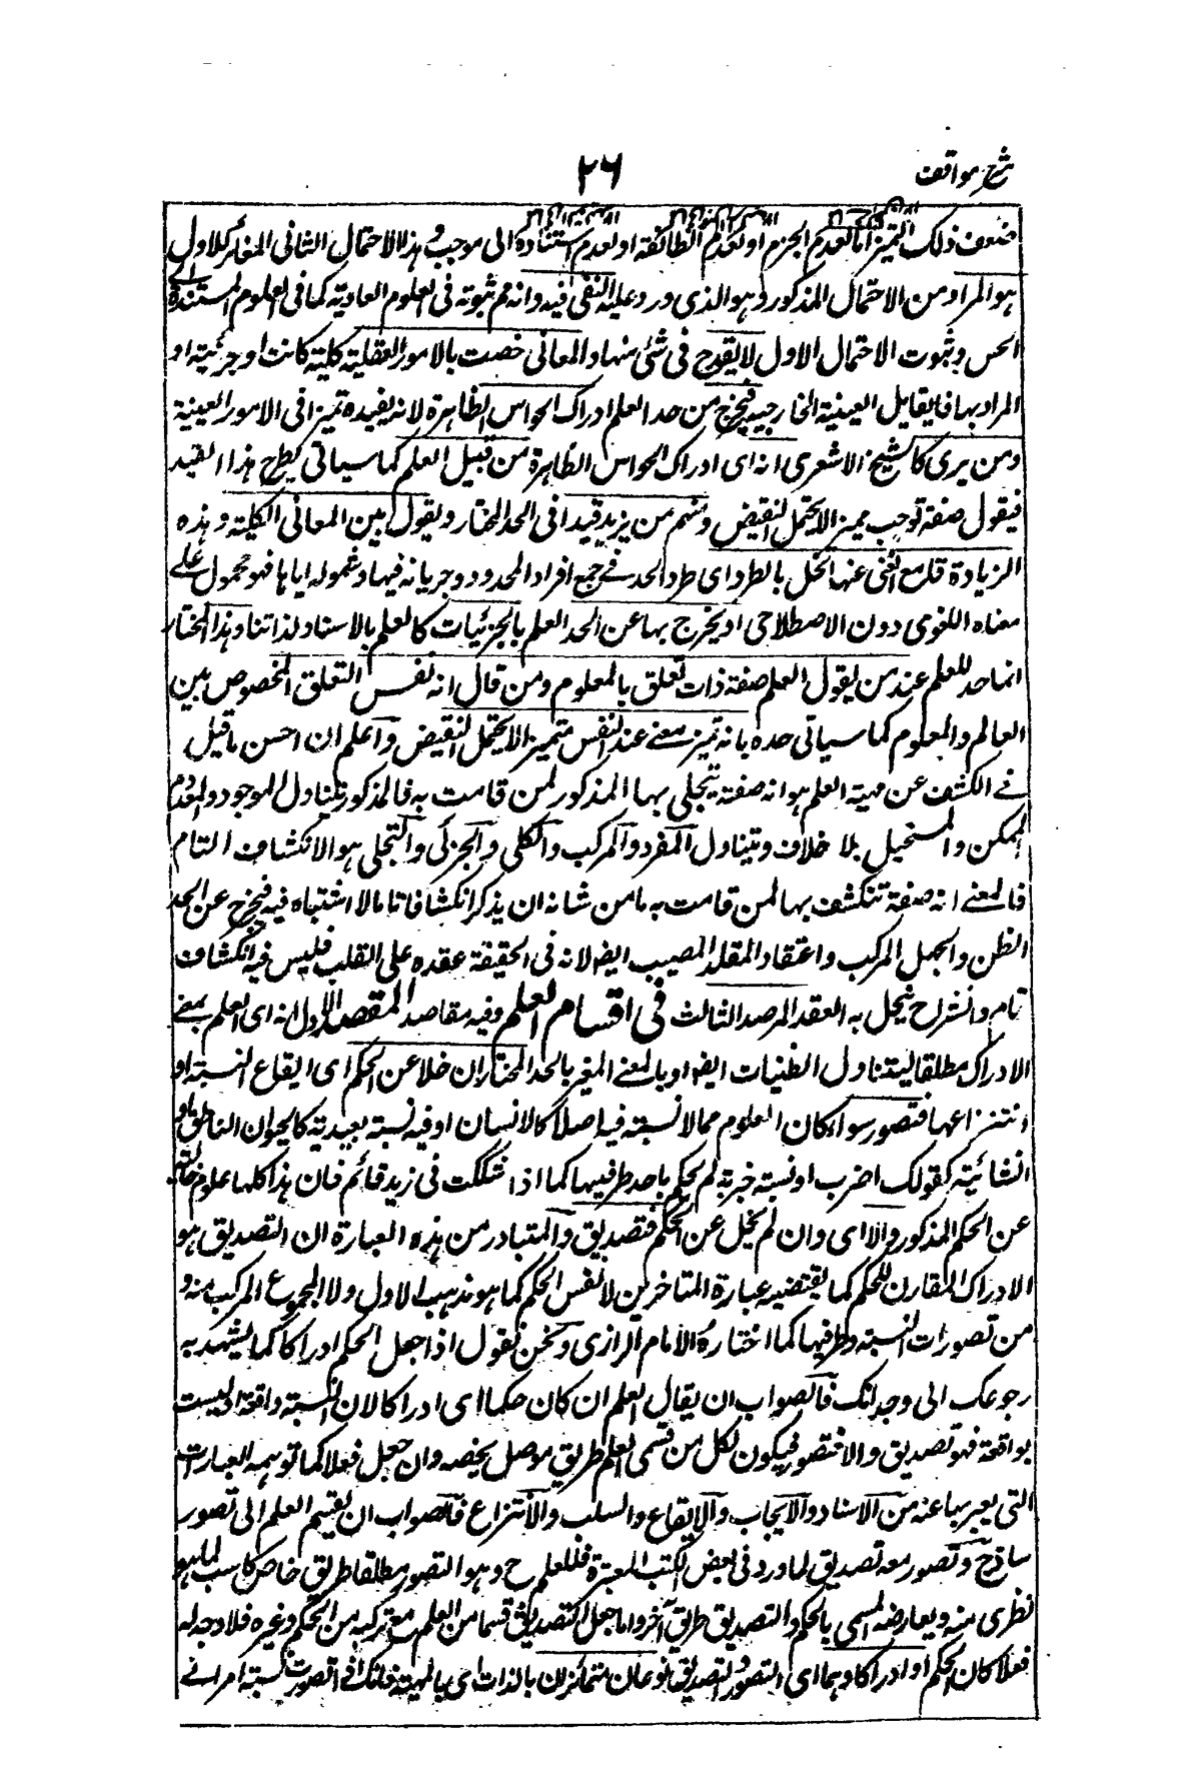 شرح مواقف
٢٦
ضعف ذلك التميز اما لعدم الجزم او لعدم المطابقة او لعدم استناده الى موجب و هذا الاحتمال الثانى المغائر للاول
هو المراد من الاحتمال المذكور و هو الذى ورد عليه النفى فيه و انه مم ثبوته فى العلوم العادية كما فى العلوم المستندة الى
الحس و ثبوت الاحتمال الاول لا يقدح فى شئ منها و المعانى خصت بالامور العقلية كلية كانت او جزئية او
المراد بها ما يقابل العينية الخارجية فيخرج من حد العلم ادراك الحواس الظاهرة لانه يفيده تميزا فى الامور العينية
و من يرى كالشيخ الاشعرى انه اى ادراك الحواس الظاهرة من قبيل العلم كما سياتى يطرح هذا القيد
فيقول صفة توجب تمييزا لا يحتمل النقيض و منهم من يزيد قيدا فى الحد المختار و يقول بين المعانى الكلية و هذه
الزيادة قلة مع الغنى عنها تخل بالطرد اى طرد الحد فى جميع افراد المحدود و جريانه فيها و شموله اياها فهو محمول على
معناه اللغوى دون الاصطلاحى اذ يخرج بها عن الحد العلم بالجزئيات كالعلم بالامنا و لذاتنا و هذا المختار
انما حد للعلم عند من يقول العلم صفة ذات تعلق بالمعلوم و من قال انه نفس التعلق المخصوص بين
العالم و المعلوم كما سياتى حده بانه تميز معنى عند النفس متميزا لا يحتمل النقيض و اعلم ان احسن ما قيل
فى الكشف عن مهية العلم هو انه صفة يتجلى بها المذكور لمن قامت به فالمذكور يتناول الموجود و المعدوم
الممكن و المستحيل بلا خلاف و يتناول المفرد و المركب و الكلى و الجزئى و التجلى هو الانكشاف التام
فالمعنى انه صفة تنكشف بها لمن قامت به ما من شانه ان يذكر انكشافا تاما لا اشتباه فيه فيخرج عن الحد
الظن و الجهل المركب و اعتقاد المقلد المصيب ايضا لانه فى الحقيقة عقدة على القلب فليس فيه انكشاف
تام و انشراح ينحل به العقدة المرصد الثالث فى اقسام العلم و فيه مقاصد المقصد الاول انه اى العلم بمعنى
الادراك مطلقا ليتناول الظنيات ايضا او بالمعنى المفسر بالحد المختار ان خلا عن الحكم اى ايقاع النسبة او
انتزاعها فتصور سواء كان المعلوم مما لا نسبة فيه اصلا كالانسان او فيه نسبة تقييدية كالحيوان الناطق او
انشائية كقولك اضرب او نسبة خبرية لم يحكم باحد طرفيها كما اذا شككت فى زيد قائم فان هذا كلها علوم خالية
عن الحكم المذكور و الا اى و ان لم يخل عن الحكم فتصديق و المتبادر من هذه العبارة ان التصديق هو
الادراك المقارن للحكم كما يقتضيه عبارة المتاخرين لا نفس الحكم كما هو مذهب الاوائل و لا المجموع المركب منه و
من تصورات النسبة و طرفيها كما اختاره الامام الرازى و نحن نقول اذا جعل الحكم ادراكا كما يشهد به
رجوعك الى وجدانك فالصواب ان يقال العلم ان كان حكما اى ادراكا لان النسبة واقعة او ليست
بواقعة فهو تصديق و الا فتصور فيكون لكل من قسمى العلم طريق موصل يخصه و ان جعل فعلا كما توهمه العبارات
التى يعبر بها عنه من الاسناد و الايجاب و الايقاع و السلب و الانتزاع فالصواب ان يقسم العلم الى تصور
ساذج و تصور معه تصديق لما ورد فى بعض الكتب المعتبرة فللعلم ح و هو التصور مطلقا طريق خاص كاسب لما هو
نظرى منه و يعارضه المسمى بالحكم و التصديق طريق آخر و اما جعل التصديق قسما من العلم مع تركبه من الحكم و غيره فلا وجه له
فعلا كان الحكم او ادراكا و هما اى التصور و التصديق نوعان متمائزان بالذات اى بالمهية فانك اذا تصورت نسبة امر الى